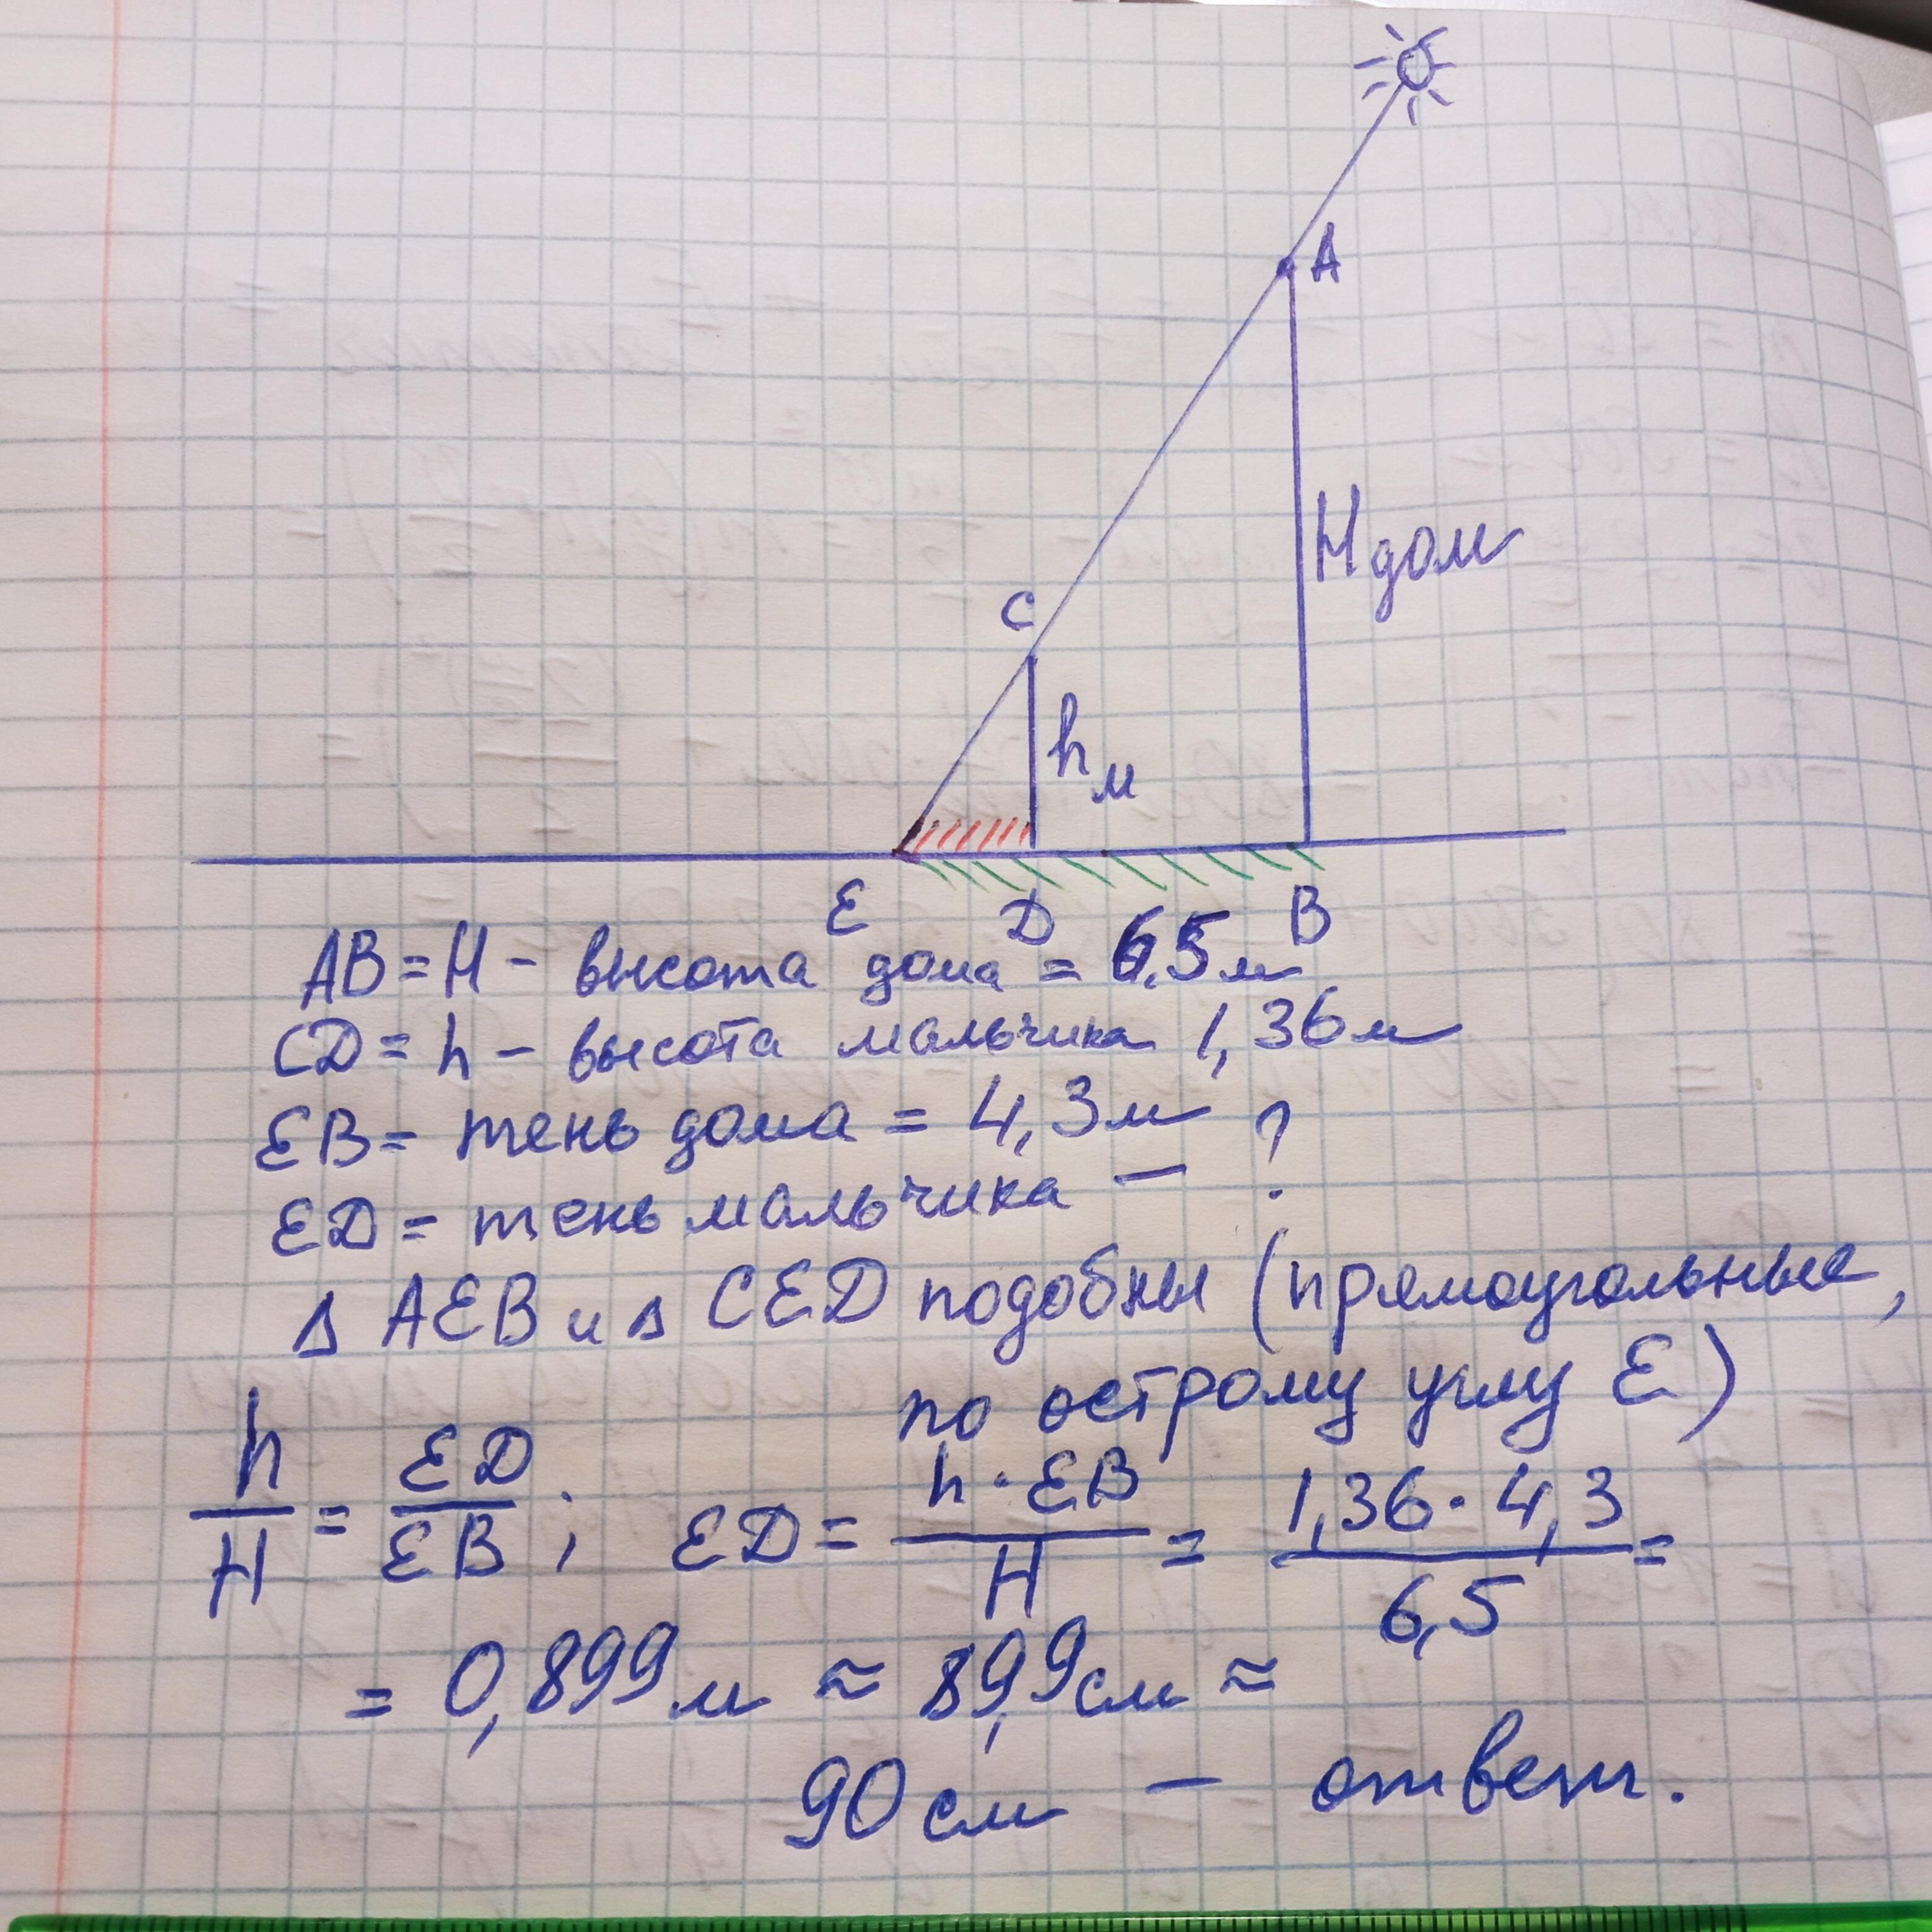 A
H дом
C
h м
E D B
AB = H - высота дома = 6,5 м
CD = h - высота мальчика 1,36 м
EB = тень дома = 4,3 м
ED = тень мальчика - ?
Δ AEB и Δ CED подобны (прямоугольные,
по острому углу E)
h/H = ED/EB ; ED = h·EB/H = 1,36·4,3/6,5 =
= 0,899 м ≈ 89,9 см ≈
90 см - ответ.